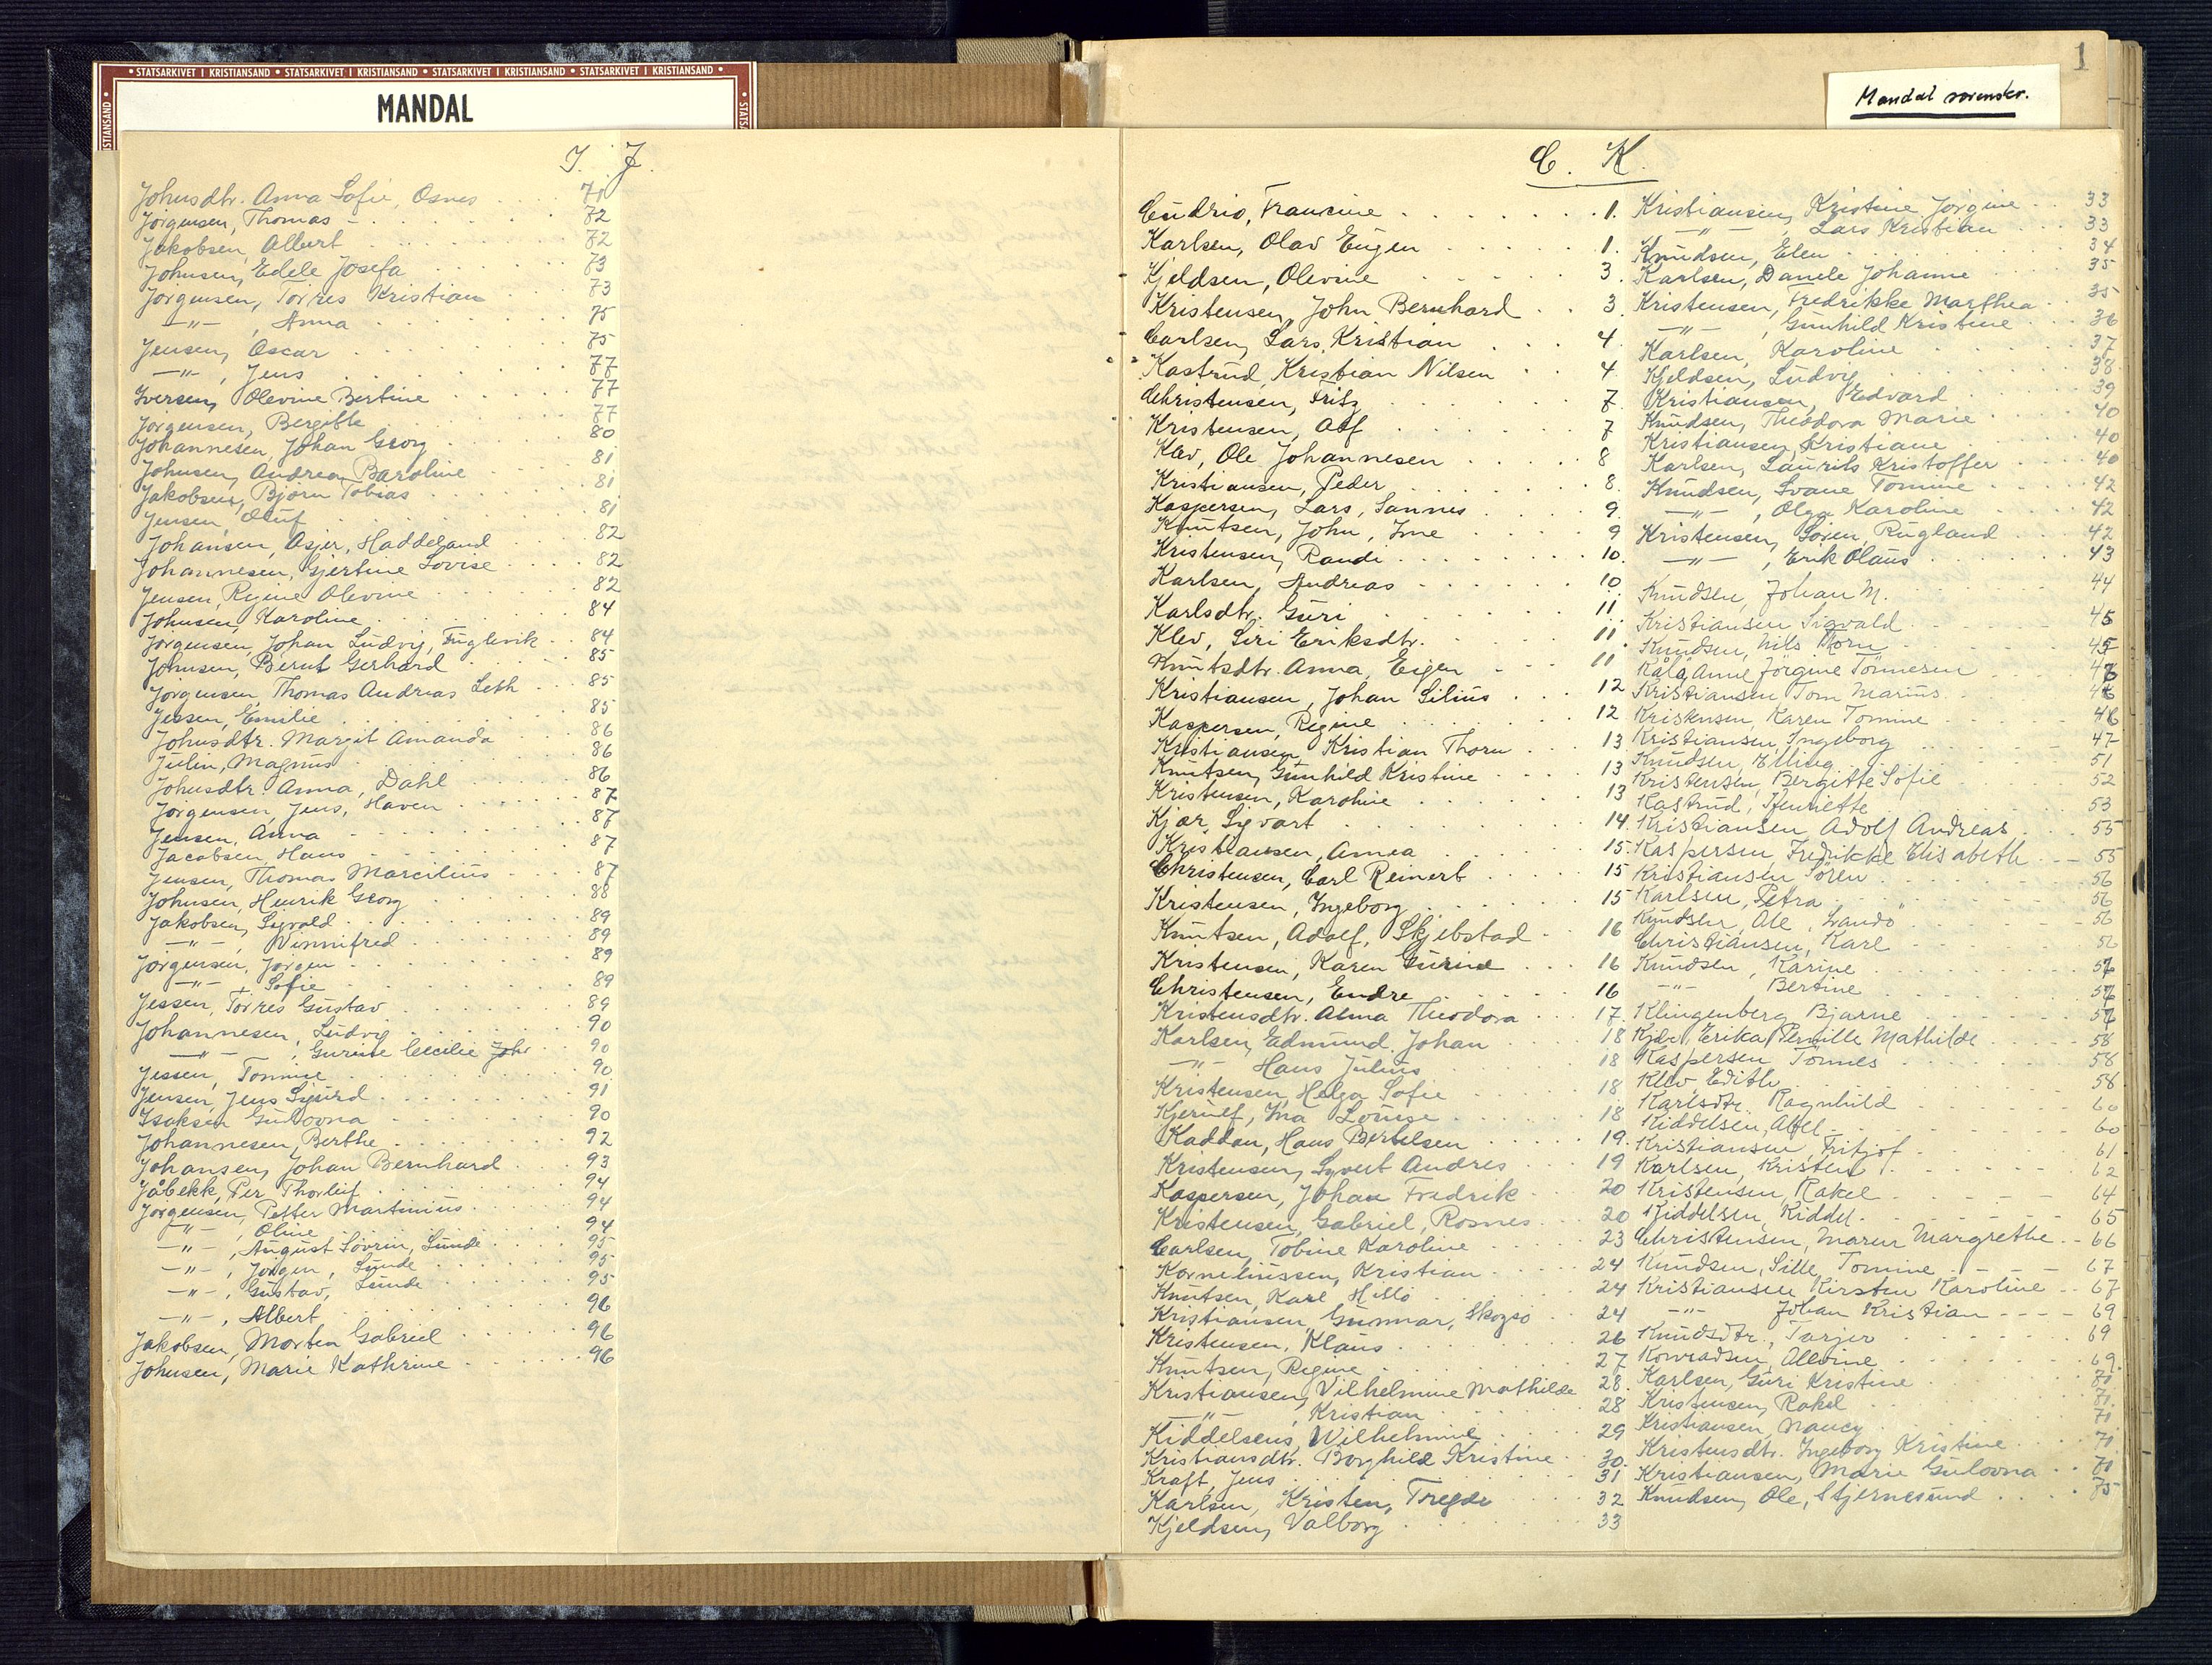 • STATSARKIVET I KRISTIANSAND • STATSARKIVET I KRISTIANSAND • STATSARKIVET I KRISTIANSAND •
MANDAL
I. J.
Johnsdtr. Anna Sofie, Osnes 71
Jørgensen, Thomas 72
Jakobsen, Albert 72
Johnsen, Edele Josefa 73
Jörgensen, Torres Kristian 73
—"— , Anna 75
Jensen, Oscar 75
—"— , Jens 77
Iversen, Olevine Bertine 77
Jörgensen, Bergitte 77
Johannesen, Johan Georg 80
Johnsen, Andrea Baroline 81
Jakobsen, Bjørn Tobias 81
Jensen, Oluf 81
Johansen, Asjer, Haddeland 82
Johannesen, Gjertine Lovise 82
Jensen, Regine Olevine 82
Johnsen, Karoline 84
Jörgensen, Johan Ludvig, Fuglevik 84
Johnsen, Bernt Gerhard 85
Jörgensen, Thomas Andreas Seth 85
Jessen, Emilie 85
Johnsdtr. Margit Amanda 86
Julin, Magnus 86
Johnsdtr. Anna, Dahl 86
Jörgensen, Jens, Haven 87
Jensen, Anna 87
Jacobsen, Hans 87
Jensen, Thomas Marcilius 87
Johnsen, Henrik Georg 88
Jakobsen, Sigvald 89
—"— , Winnifred 89
Jørgensen, Jørgen 89
—"— , Sofie 89
Jessen, Torres Gustav 89
Johannesen, Ludvig 90
—"— , Gurine Cecilie Johs 90
Jessen, Tomine 90
Jensen, Jens Sigurd 91
Isaksen Gulovna 90
Johannesen, Berthe 92
Johansen, Johan Bernhard 93
Jåbekk, Per Thorleif 94
Jørgensen, Petter Martinius 94
—"— , Oline 94
—"— , August Sövrin, Lunde 95
—"— , Jørgen, Lunde 95
—"— , Gustav, Lunde 95
—"— , Albert 96
Jakobsen, Morten Gabriel 96
Johnsen, Marie Kathrine 96
1
Mandal sorenskr.
C. K.
Francine 1.
Karlsen, Olav Eugen 1.
Kjeldsen, Olevine 3.
Kristensen, John Bernhard 3.
Carlsen, Lars Kristian 4.
Kastrud, Kristian Nilsen 4
Christensen, Fritz 7.
Kristensen, Alf 7
Klev, Ole Johannesen 8
Kristiansen, Peder 8.
Kaspersen, Lars, Sannes 9.
Knutsen, John, Ime 9
Kristensen, Randi 10.
Karlsen, Andreas 10.
Karlsdtr. Guri 11.
Klev, Siri Eriksdtr. 11
Knutsdtr. Anna, Eigen 11
Kristiansen, Johan Silius 12
Kaspersen, Regine 12
Kristiansen, Kristian Thorn 13
Knutsen, Gunhild Kristine 13
Kristensen, Karoline 13
Kjær, Sigvart 14.
Kristiansen, Anna 15.
Christensen, Carl Reinert 15
Kristensen, Ingeborg 15
Knutsen, Adolf, Skjebstad 16
Kristensen, Karen Gurine 16
Christensen, Endre 16
Kristensdtr. Alma Theodora 17.
Karlsen, Edmund Johan 18
—"— Hans Julius 18
Kristensen, Helga Sofie 18
Kjerulf, Ina Louise 18
Kaddan, Hans Bertelsen 19.
Kristensen, Sigvert Andres 19
Kaspersen, Johan Fredrik 20
Kristensen, Gabriel, Rosnes 20
Carlsen, Tobine Karoline 23
Korneliussen, Kristian 24
Knutsen, Karl Hillö 24
Kristiansen, Gunnar, Skogsö 24
Kristensen, Klaus 26
Knutsen, Regine 27
Kristiansen, Vilhelmine Mathilde 28.
—"— , Kristian 28
Kiddelsens, Wilhelmine 29
Kristiansdtr. Borghild Kristine 30.
Kraft, Jens 31
Karlsen, Kristen, Tregde 32
Kjeldsen, Valborg 33
Kristiansen, Kristine Jörgine 33
—"— , Lars Kristian 33
Knudsen, Elen 34
Karlsen, Danele Johanne 35
Kristensen, Fredrikke Marthea 35
—"— , Gunhild Kristine 36
Karlsen, Karoline 37
Kjeldsen, Ludvig 38
Kristiansen, Edvard 39
Knudsen, Theodora Marie 40
Kristiansen, Kristiane 40
Karlsen, Laurits Kristoffer 40
Knudsen, Svane Tomine 42
—"— , Olga Karoline 42
Kristensen, Sören, Rugland 42
—"— , Erik Olaus 43
Knudsen, Johan M. 44
Kristiansen Sigvald 45
Knudsen, Nils Korn 45
Anne Jörgine Tönnesen
Kristiansen Tom Marius 46
Kristensen, Karen Tomine 46
Kristiansen, Ingeborg 47
Knudsen, Elling 51
Kristensen, Bergitte Sofie 52
Kastrud, Henriette 53
Kristiansen Adolf Andreas 55
Kaspersen, Fredrikke Elisabeth 55
Kristiansen Sören 56
Karlsen, Petra 56
Knudsen, Ole, 56
Christiansen, Karl 56
Knudsen, Karine 57
—"— Bertine 57
Klingenberg Bjarne 57
Kjær, Erika Pernille Mathilde 58
Kaspersen Tönnes 58
Klev Edith 58
Karlsdtr. Ragnhild 60
Kiddelsen, Alfel 60
Kristiansen, Fritjof 61
Karlsen, Kristen 62
Kristensen, Rakel 64
Kiddelsen, Kiddel 65
Christensen, Maren Margrethe 66
Knudsen, Sille Tomine 67
Kristiansen Kirsten Karoline 67
—"— Johan Kristian 69
Knudsdtr., Tarjer 69
Konradsen, Allvine 69.
Karlsen, Guri Kristine 70
Kristensen, Rakel 71.
Kristiansen, Nancy 71
Kristensdtr. Ingeborg Kristine 71
Kristiansen, Marie Gulovna 71
Knudsen, Ole, Stjernesund 75